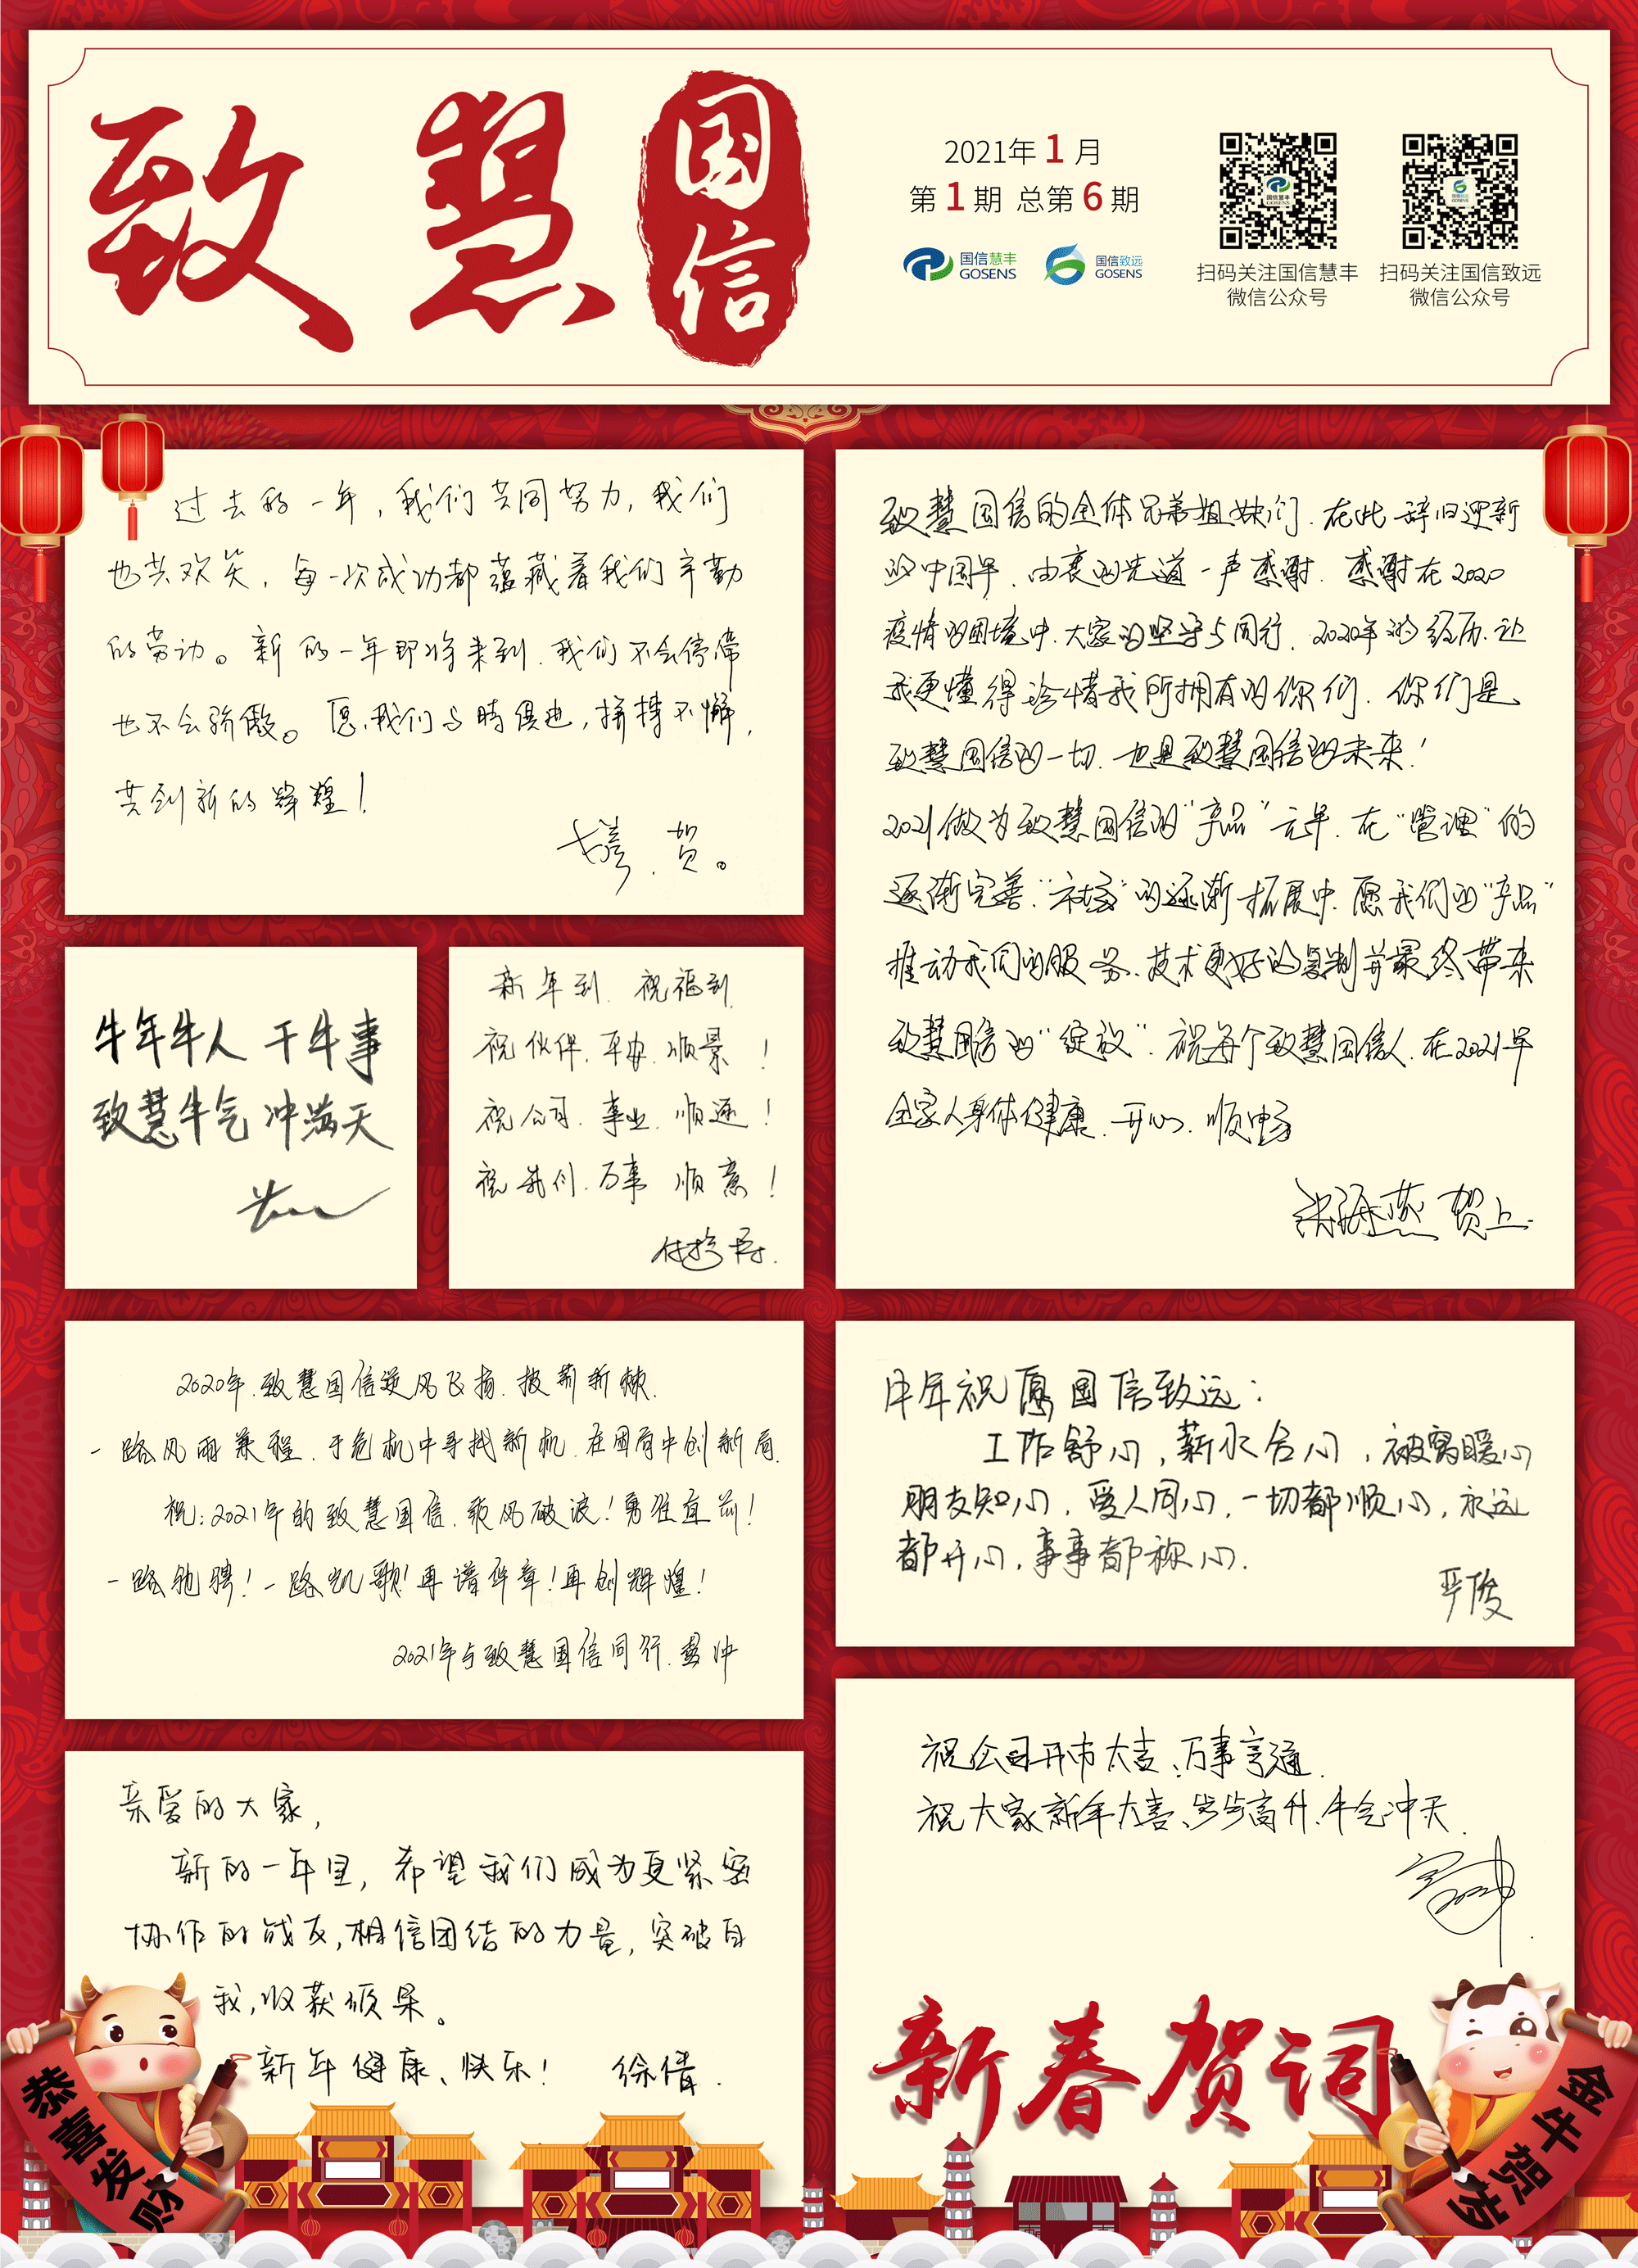 致慧
国信
2021年 1 月
第 1 期 总第 6 期
国信慧丰
GOSENS
国信致远
GOSENS
扫码关注国信慧丰
微信公众号
扫码关注国信致远
微信公众号
过去的一年，我们共同努力，我们
也共欢笑，每一次成功都蕴藏着我们辛勤
的劳动。新的一年即将来到，我们不会停滞
也不会骄傲。愿我们与时俱进，拼搏不懈，
共创新的辉煌！
贺。
致慧国信的全体兄弟姐妹们，在此辞旧迎新
的中国年，由衷的先道一声感谢，感谢在2020
疫情的困境中，大家的坚守与同行，2020年的经历，让
我更懂得珍惜我所拥有的你们，你们是
致慧国信的一切，也是致慧国信的未来！
2021做为致慧国信的“产品”元年，在“管理”的
逐渐完善，“市场”的逐渐拓展中，愿我们的“产品”
推动我们的服务、技术更好的复制并最终带来
致慧国信的“绽放”，祝每个致慧国信人，在2021年
全家人身体健康，开心，顺畅
张海燕 贺上.
牛年牛人 干牛事
致慧牛气 冲满天
新年到，祝福到，
祝伙伴，平安，顺景！
祝公司，事业，顺遂！
祝我们，万事 顺意！
2020年，致慧国信逆风飞扬，披荆斩棘，
一路风雨兼程，于危机中寻找新机，在困局中创新局，
祝：2021年的致慧国信，乘风破浪！勇往直前！
一路驰骋！一路凯歌！再谱华章！再创辉煌！
2021年与致慧国信同行，彭冲
牛年祝愿国信致远：
工作舒心，薪水合心，被窝暖心
朋友知心，爱人同心，一切都顺心，永远
都开心，事事都称心.
严俊
亲爱的大家，
新的一年里，希望我们成为更紧密
协作的战友，相信团结的力量，突破自
我，收获硕果。
新年健康、快乐！ 徐倩.
祝公司开市大吉、万事亨通
祝大家新年大喜、步步高升、牛气冲天
新春贺词
恭喜发财
金牛贺岁